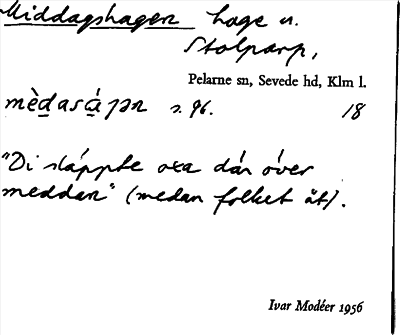 Middagshagen hage u.
Stolparp,
Pelarne sn, Sevede hd, Klm l.
s. 96. 18
"Di släppte oxa där över
meddan" (medan folket åt).
Ivar Modéer 1956